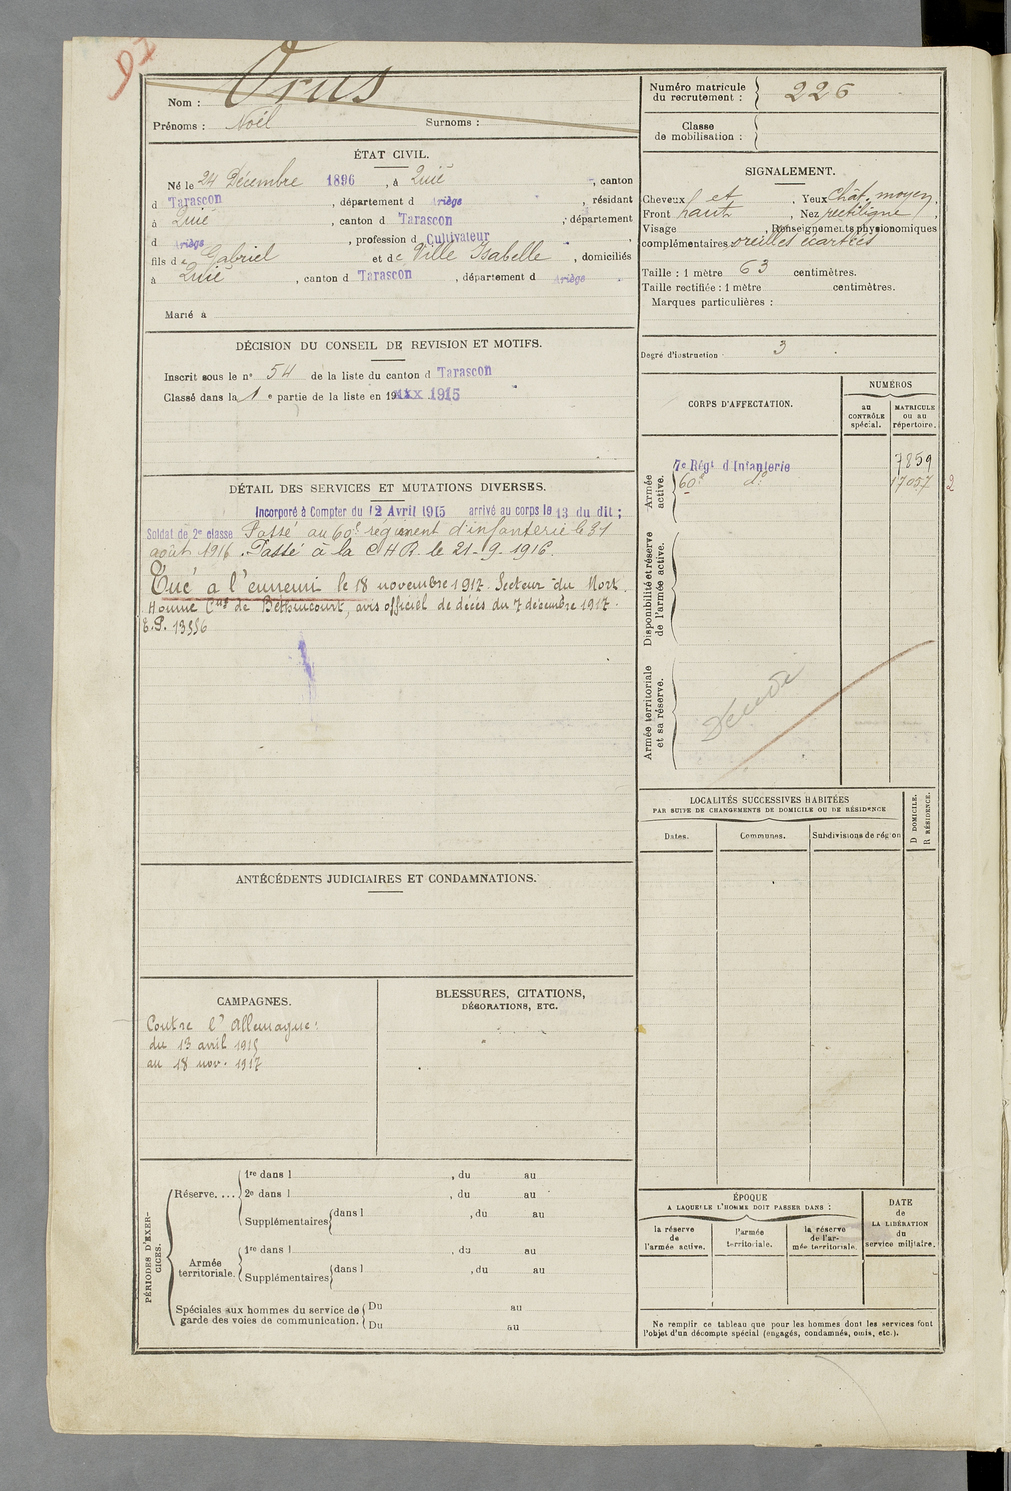 Nom : Orus
Prénoms : Noël Surnoms :
Numéro matricule du recrutement : 226
Classe de mobilisation :
ÉTAT CIVIL.
Né le 24 Décembre 1896, à Quié, canton
d Tarascon, département d Ariège, résidant
à Quié, canton d Tarascon, département
d Ariège, profession d Cultivateur,
fils de Gabriel et de Ville Isabelle, domiciliés
à Quié, canton d Tarascon, département d Ariège.
Marié à
SIGNALEMENT.
Cheveux et, Yeux Chât. moyen,
Front haut, Nez rectiligne,
Visage, Renseignements physionomiques
complémentaires oreilles écartées
Taille : 1 mètre 63 centimètres.
Taille rectifiée : 1 mètre centimètres.
Marques particulières :
Degré d'instruction 3
DÉCISION DU CONSEIL DE REVISION ET MOTIFS.
Inscrit sous le n° 54 de la liste du canton d Tarascon
Classé dans la 1e partie de la liste en 19xxx 1915
CORPS D'AFFECTATION.
NUMÉROS
au CONTRÔLE spécial.
MATRICULE ou au répertoire.
Armée active.
7e Régt d'Infanterie 7859
60e do 17057
2
Disponibilité et réserve de l'armée active.
Armée territoriale et sa réserve.
DÉTAIL DES SERVICES ET MUTATIONS DIVERSES.
Incorporé à Compter du 12 Avril 1915 arrivé au corps le 13 du dit ;
Soldat de 2e classe Passé au 60e régiment d'infanterie le 31
août 1916. Passé à la C H R le 21-9-1916.
Tué à l'ennemi le 18 novembre 1917. Secteur du Mort
Homme Cne de Béthincourt, avis officiel de décès du 7 décembre 1917.
E.P. 13556
LOCALITÉS SUCCESSIVES HABITÉES
PAR SUITE DE CHANGEMENTS DE DOMICILE OU DE RÉSIDENCE
Dates. Communes. Subdivisions de région
D DOMICILE.
R RÉSIDENCE.
ANTÉCÉDENTS JUDICIAIRES ET CONDAMNATIONS.
CAMPAGNES.
Contre l'Allemagne :
du 13 avril 1915
au 18 nov. 1917
BLESSURES, CITATIONS,
DÉCORATIONS, ETC.
PÉRIODES D'EXERCICES.
Réserve....
1re dans l , du au
2e dans l , du au
Supplémentaires dans l , du au
Armée territoriale.
1re dans l , du au
Supplémentaires dans l , du au
Spéciales aux hommes du service de Du au
garde des voies de communication. Du au
ÉPOQUE
A LAQUELLE L'HOMME DOIT PASSER DANS :
la réserve de l'armée active.
l'armée territoriale.
la réserve de l'armée territoriale.
DATE de LA LIBÉRATION du service militaire.
Ne remplir ce tableau que pour les hommes dont les services font
l'objet d'un décompte spécial (engagés, condamnés, omis, etc.).